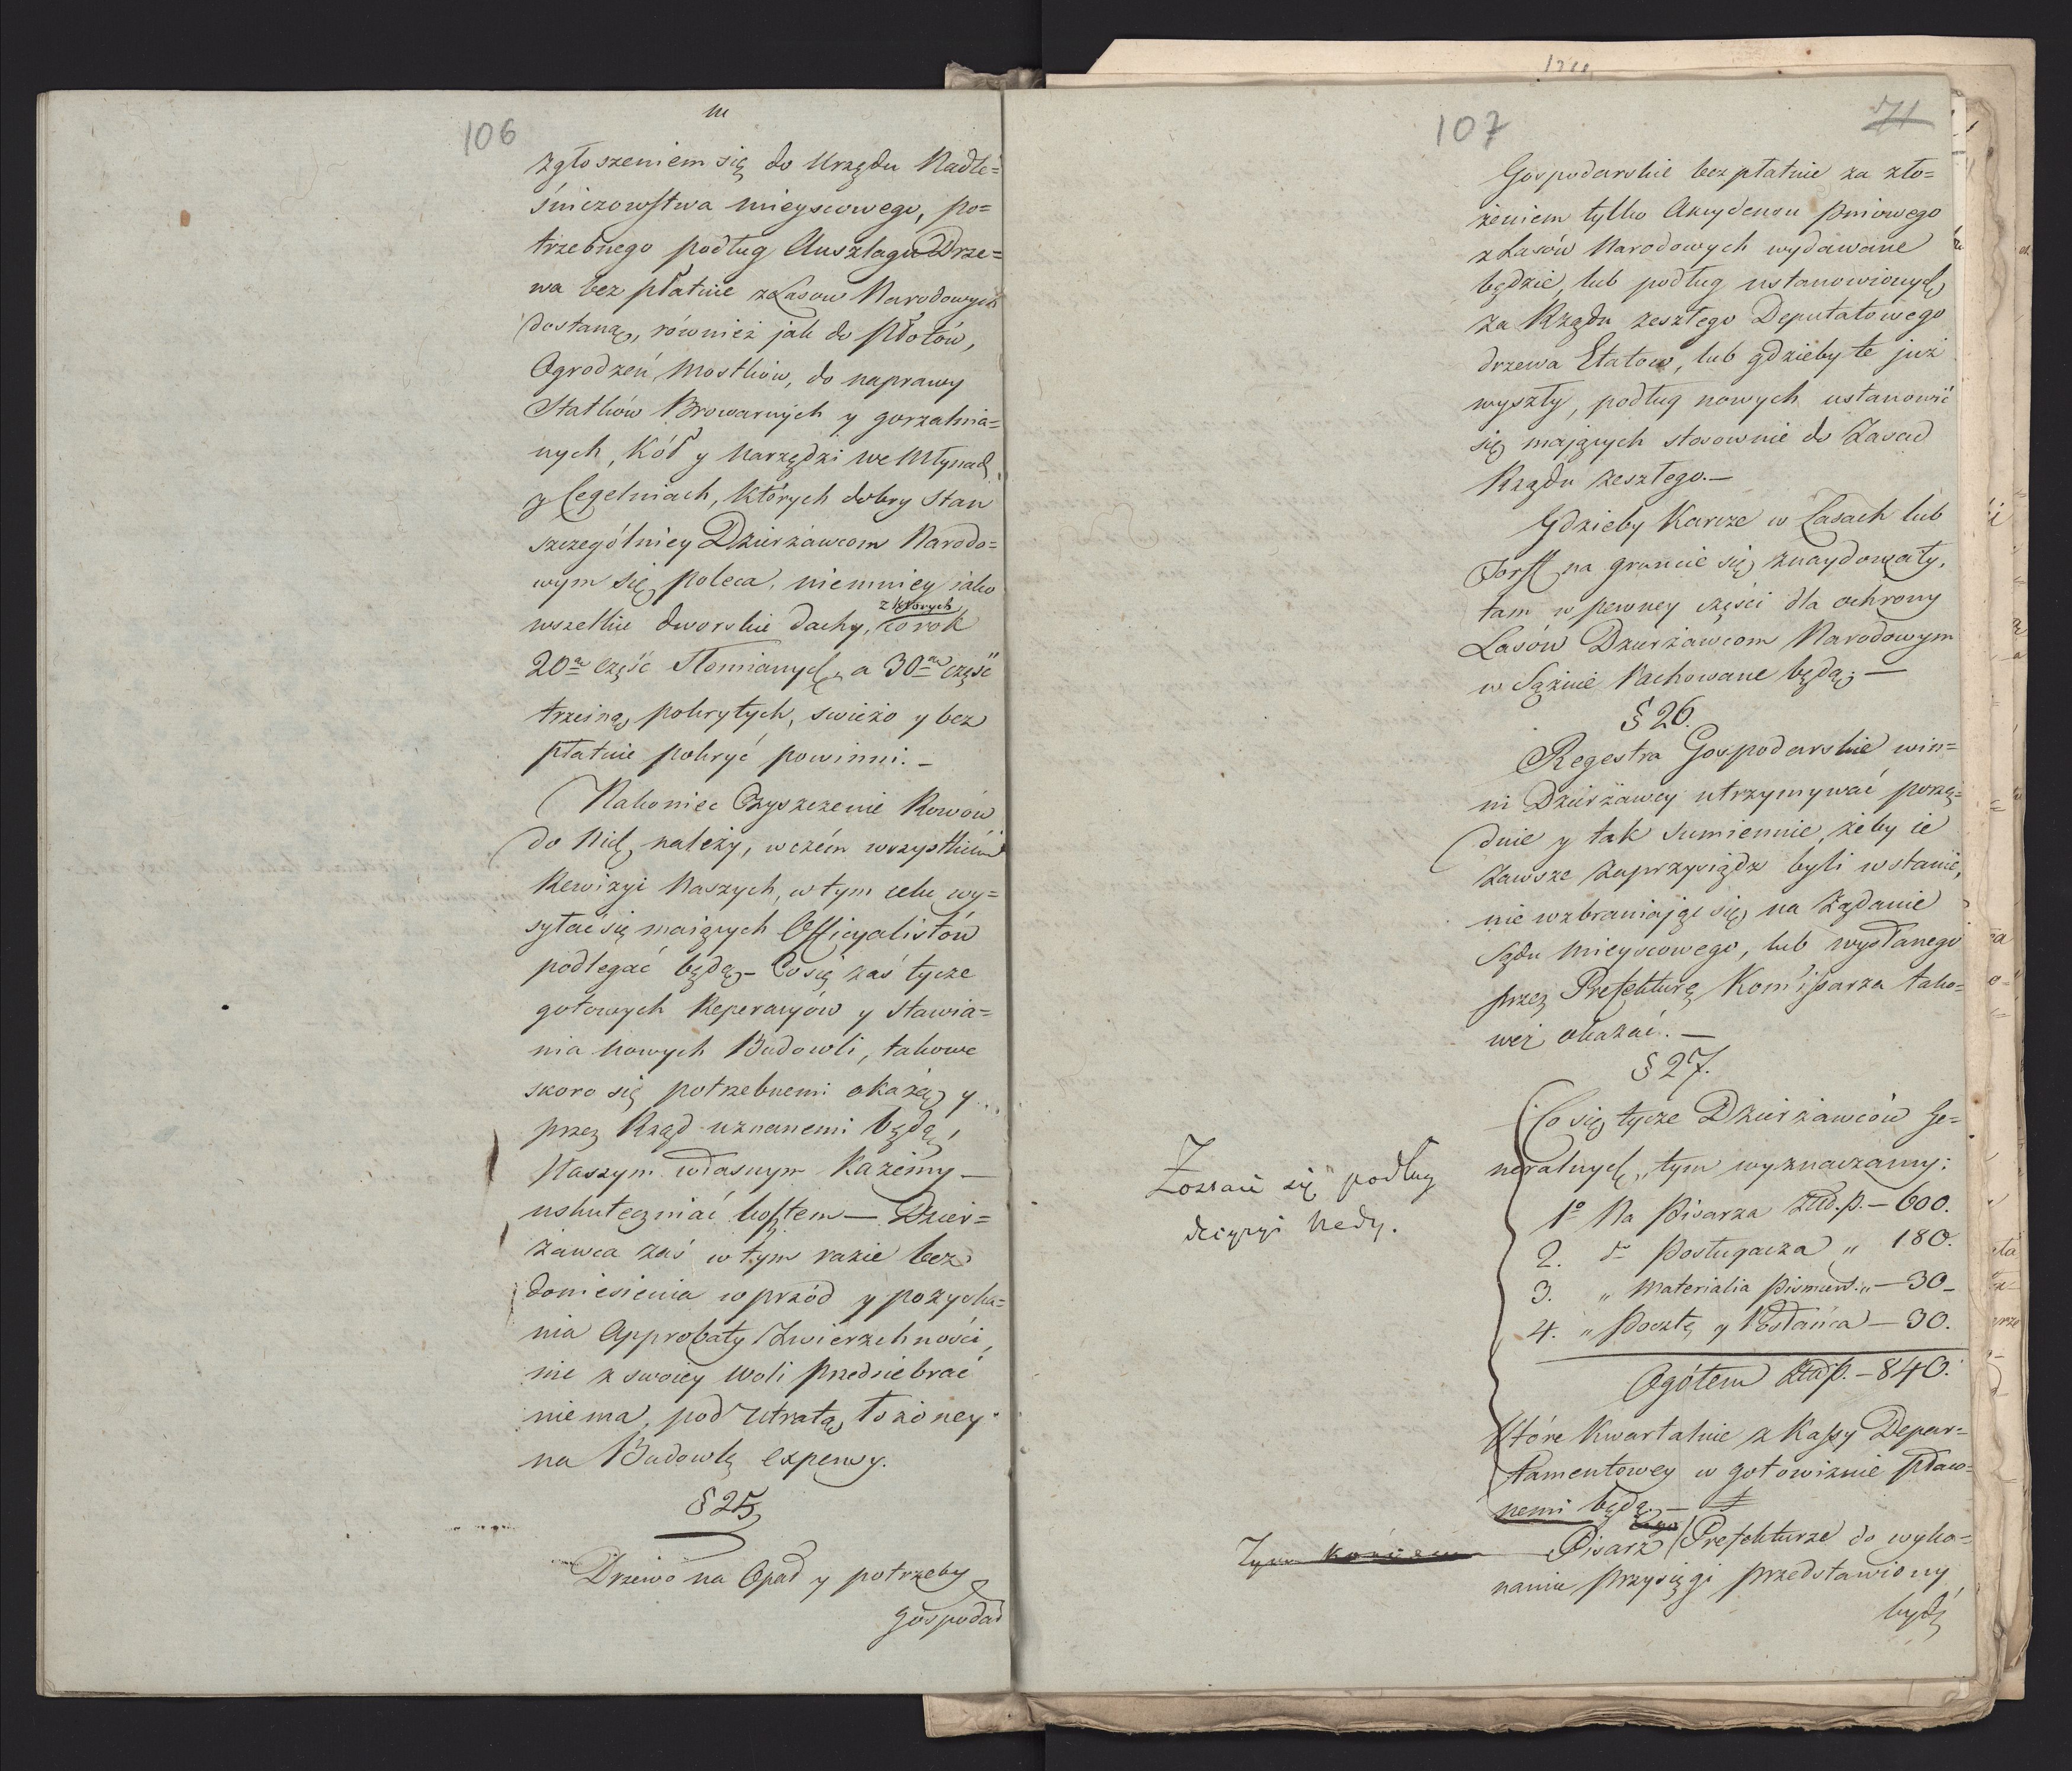 106
zgłoszeniem się do Urzędu Nadle=
śniczowstwa mieyscowego, po=
trzebnego podług Auszlagu Drze=
wa bezpłatnie z Lasow Narodowych
dostaną, również jak do płotów,
Ogrodzeń, Mostków, do naprawy
Statków Browarnych y gorzalnia=
nych, Kół y Narzędzi we Młynach
y Cegelniach, których dobry Stan
szczególniey Dzierżawcom Narodo=
wym się poleca, niemniey iako
wszelkie dworskie dachy, z których co rok
20ą część Słomianych, a 30ą część
trzciną pokrytych, swieżo y bez
płatnie pokryć powinni. –
Nakoniec Czyszczenie Rowów
do Nich należy, w czém wszystkiém
Rewizyi Naszych, w tym celu wy=
syłać się maiących Officyalistów
podlegać będą – Co się zaś tycze
gotowych Reperacyów y Stawia=
nia Nowych Budowli, takowe
skoro się potrzebnemi okażą y
przez Rząd uznanemi będą,
Naszym własnym Każemy –
uskuteczniać kosztem – Dzier=
żawca zaś w tym razie bez
doniesienia wprzód y pozyska=
nia Approbaty Zwierzchności,
nie z swoiey woli przedsiebrać
niema, pod Utratą łożoney
na Budowlę expensy.
§ 25,
Drzewo na Opał y potrzeby
Gospodar
107
71
Gospodarskie bezpłatnie za zło=
żeniem tylko Akcydensu pniowego
z Lasów Narodowych wydawane
będzie, lub podług ustanowionych
za Rządu zeszłego Deputatowego
drzewa Etatow, lub gdzieby te już
wyszły, podług nowych ustanowić
się mających stosownie do Zasad
Rządu zeszłego. –
Gdzieby Karcze w Lasach lub
Torff na gruncie się znaydowały,
tam w pewney części dla ochrony
Lasów Dzierżawcom Narodowym
w Sążnie Rachowane będą; –
§ 26.
Regestra Gospodarskie win=
ni Dzierżawcy utrzymywać porzą=
dnie y tak sumiennie, żeby ie
zawsze zaprzysiądz byli wstanie,
nie wzbraniając się na Żądanie
Sądu Mieyscowego, lub wysłanego
przez Prefekturę Kommissarza tako=
weż okazać. –
§ 27.
Co się tycze Dzierżawców Ge=
neralnych, tym wyznaczamy:
1o Na Pisarza Złł.p. – 600.
2. do Posługacza „ 180.
3. „ Materialia Pismien. „ – 30 –
4. „ Pocztę y Posłańca – 30.
Ogółem Złłp. – 840.
Które Kwartalnie z Kassy Depar=
tamentowey w gotowiznie płaco=
nemi będą. –
Pisarz Prefekturze do wyko=
nania przysięgi przedstawiony
bydź
Zostaie się podług
decyzyi
Tym końcem